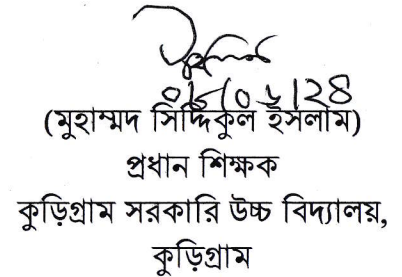 (মুহাম্মদ সিদ্দিকুল ইসলাম)
প্রধান শিক্ষক
কুড়িগ্রাম সরকারি উচ্চ বিদ্যালয়,
কুড়িগ্রাম